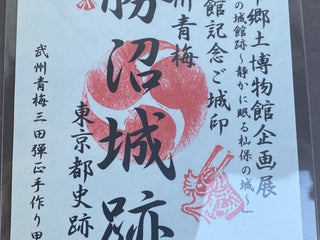 郷土博物館企画展
の城館跡～静かに眠る杣保の城～
館記念ご城印
州青梅
勝沼城跡
東京都史跡
武州青梅三田弾正手作り甲